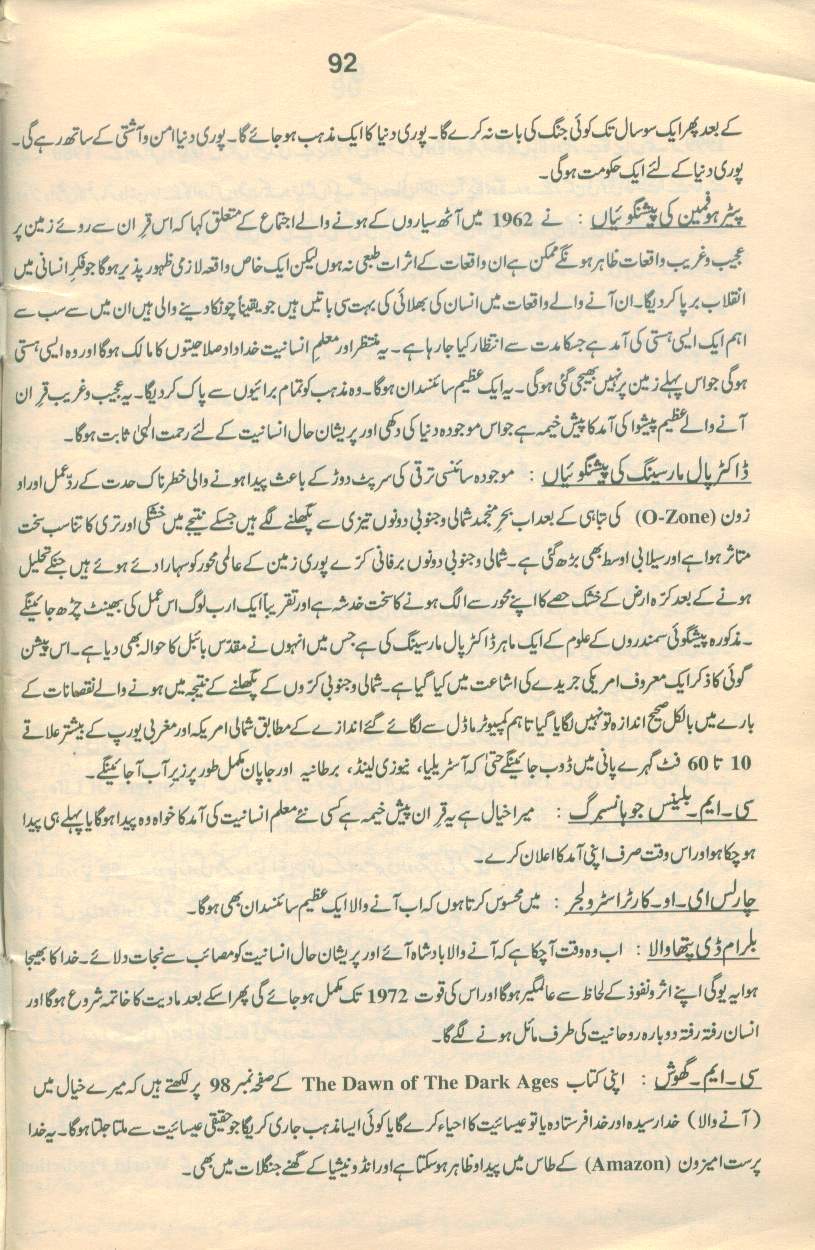 92
کے بعد پھر ایک سو سال تک کوئی جنگ کی بات نہ کرے گا۔ پوری دنیا کا ایک مذہب ہو جائے گا۔ پوری دنیا امن و آشتی کے ساتھ رہے گی۔
پوری دنیا کے لئے ایک حکومت ہوگی۔
پیٹر ہوفمین کی پیشنگوئیاں : نے 1962 میں آٹھ سیاروں کے ہونے والے اجتماع کے متعلق کہا کہ اس قِران سے روئے زمین پر
عجیب و غریب واقعات ظاہر ہونگے ممکن ہے ان واقعات کے اثرات طبعی نہ ہوں لیکن ایک خاص واقعہ لازمی ظہور پذیر ہوگا جو فکرِ انسانی میں
انقلاب برپا کر دیگا۔ ان آنے والے واقعات میں انسان کی بھلائی کی بہت سی باتیں ہیں جو یقیناً چونکا دینے والی ہیں ان میں سے سب سے
اہم ایک ایسی ہستی کی آمد ہے جسکا مدت سے انتظار کیا جا رہا ہے۔ یہ منتظر اور معلمِ انسانیت خداداد صلاحیتوں کا مالک ہوگا اور وہ ایسی ہستی
ہوگی جو اس پہلے زمین پر نہیں بھیجی گئی ہوگی۔ یہ ایک عظیم سائنسدان ہوگا۔ وہ مذہب کو تمام برائیوں سے پاک کر دیگا۔ یہ عجیب و غریب قِران
آنے والے عظیم پیشوا کی آمد کا پیش خیمہ ہے جو اس موجودہ دنیا کی دکھی اور پریشان حال انسانیت کے لئے رحمت الہیٰ ثابت ہوگا۔
ڈاکٹر پال مارسینگ کی پیشنگوئیاں : موجودہ سائنسی ترقی کی سرپٹ دوڑ کے باعث پیدا ہونے والی خطرناک حدت کے ردِّ عمل اور او
زون (O-Zone) کی تباہی کے بعد اب بحرِ منجمد شمالی و جنوبی دونوں تیزی سے پگھلنے لگے ہیں جسکے نتیجے میں خشکی اور تری کا تناسب سخت
متاثر ہوا ہے اور سیلابی اوسط بھی بڑھ گئی ہے۔ شمالی و جنوبی دونوں برفانی کرّے پوری زمین کے عالمی محور کو سہارا دئے ہوئے ہیں جنکے تحلیل
ہونے کے بعد کرّہ ارض کے خشک حصے کا اپنے محور سے الگ ہونے کا سخت خدشہ ہے اور تقریباً ایک ارب لوگ اس عمل کی بھینٹ چڑھ جائینگے
۔ مذکورہ پیشگوئی سمندروں کے علوم کے ایک ماہر ڈاکٹر پال مارسینگ کی ہے جس میں انہوں نے مقدّس بائبل کا حوالہ بھی دیا ہے۔ اس پیشن
گوئی کا ذکر ایک معروف امریکی جریدے کی اشاعت میں کیا گیا ہے۔ شمالی و جنوبی کرّوں کے پگھلنے کے نتیجہ میں ہونے والے نقصانات کے
بارے میں بالکل صحیح اندازہ تو نہیں لگایا گیا تاہم کمپیوٹر ماڈل سے لگائے گئے اندازے کے مطابق شمالی امریکہ اور مغربی یورپ کے بیشتر علاقے
10 تا 60 فٹ گہرے پانی میں ڈوب جائینگے حتیٰ کہ آسٹریلیا، نیوزی لینڈ، برطانیہ اور جاپان مکمل طور پر زیرِ آب آجائینگے۔
سی۔ ایم۔ بلینس جوہانسبرگ : میرا خیال ہے یہ قِران پیش خیمہ ہے کسی نئے معلم انسانیت کی آمد کا خواہ وہ پیدا ہوگا یا پہلے ہی پیدا
ہو چکا ہو اور اس وقت صرف اپنی آمد کا اعلان کرے۔
چارلس ای۔ او۔ کارٹر اسٹرولجر : میں محسوس کرتا ہوں کہ اب آنے والا ایک عظیم سائنسدان بھی ہوگا۔
بلرام ڈی پتھاوالا : اب وہ وقت آچکا ہے کہ آنے والا بادشاہ آئے اور پریشان حال انسانیت کو مصائب سے نجات دلائے۔ خدا کا بھیجا
ہوا یہ یوگی اپنے اثر و نفوذ کے لحاظ سے عالمگیر ہوگا اور اس کی قوت 1972 تک مکمل ہو جائے گی پھر اسکے بعد مادیت کا خاتمہ شروع ہوگا اور
انسان رفتہ رفتہ دوبارہ روحانیت کی طرف مائل ہونے لگے گا۔
سی۔ ایم۔ گھوش : اپنی کتاب The Dawn of The Dark Ages کے صفحہ نمبر 98 پر لکھتے ہیں کہ میرے خیال میں
(آنے والا) خدا رسیدہ اور خدا فرستادہ یا تو عیسائیت کا احیاء کرے گا یا کوئی ایسا مذہب جاری کریگا جو حقیقی عیسائیت سے ملتا جلتا ہوگا۔ یہ خدا
پرست امیزون (Amazon) کے طاس میں پیدا و ظاہر ہو سکتا ہے اور انڈونیشیا کے گھنے جنگلات میں بھی۔